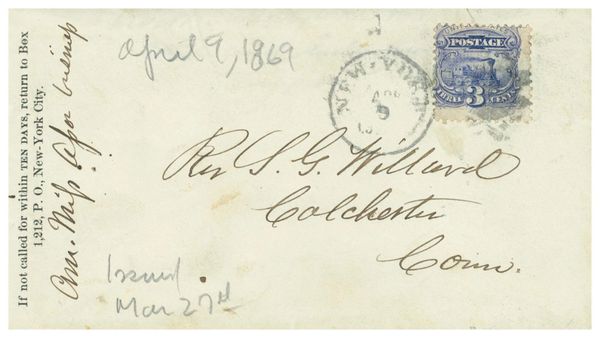 If not called for within TEN DAYS, return to Box
1,212, P. O., New-York City.
Am. Miss. Asso
April 9, 1869
NEW-YORK
APR
9
POSTAGE
THREE 3 CENTS
Rev S. G. Willard
Colchester
Conn.
Issued
Mar 27th